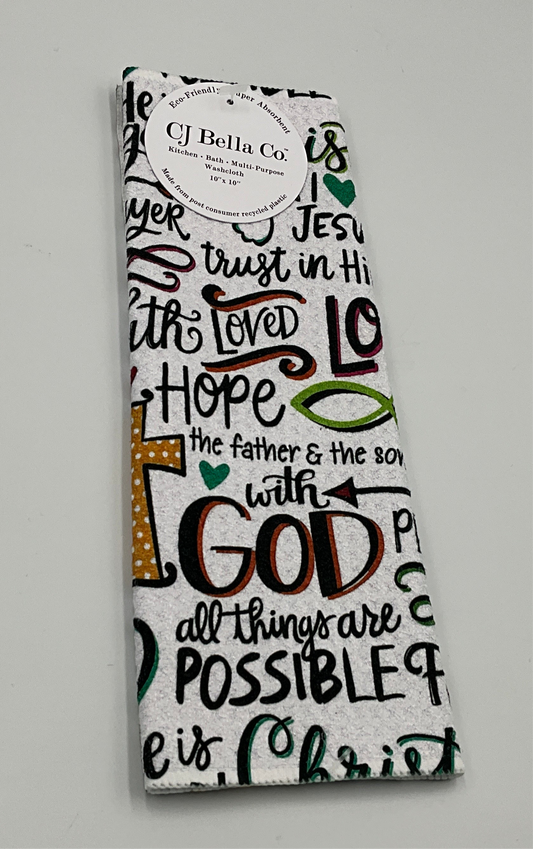 Eco-Friendly Super Absorbent
CJ Bella Co.™
Kitchen • Bath • Multi-Purpose
Washcloth
10" x 10"
Made from post consumer recycled plastic
He
is
yer
JESU
trust in Hi
ith LOVED LO
HOPE
the father & the son
with
GOD
all things are
POSSIBLE
e is Christ